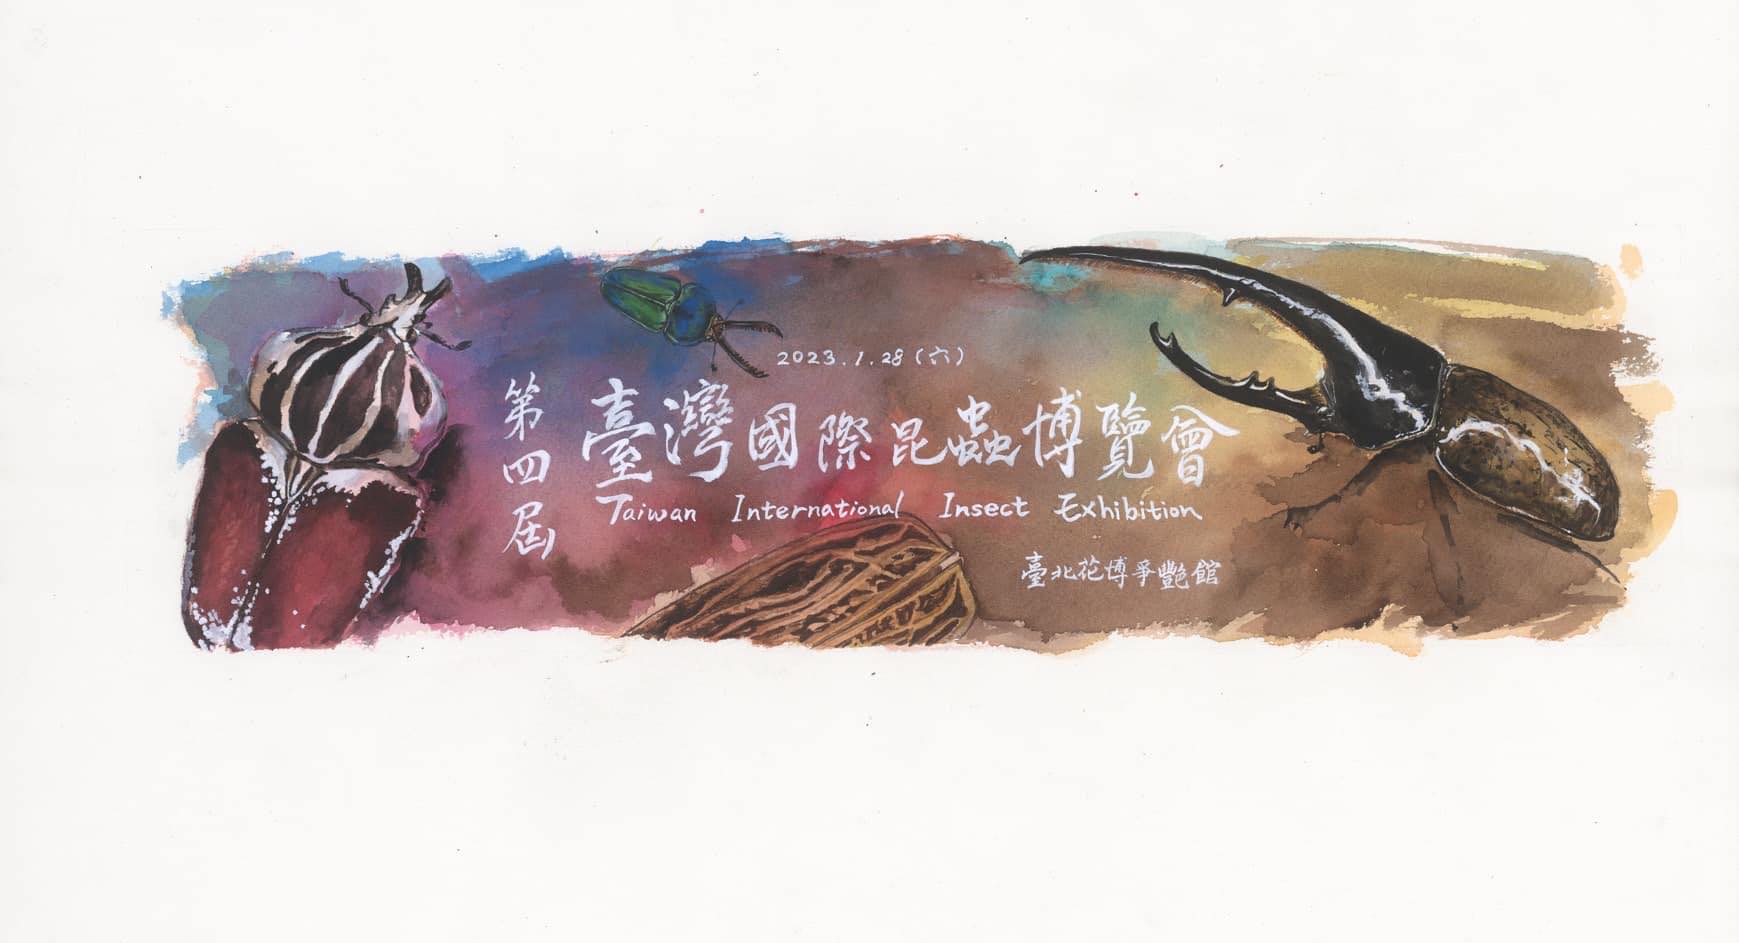 2023.1.28(六)
第四屆
臺灣國際昆蟲博覽會
Taiwan International Insect Exhibition
臺北花博爭艷館